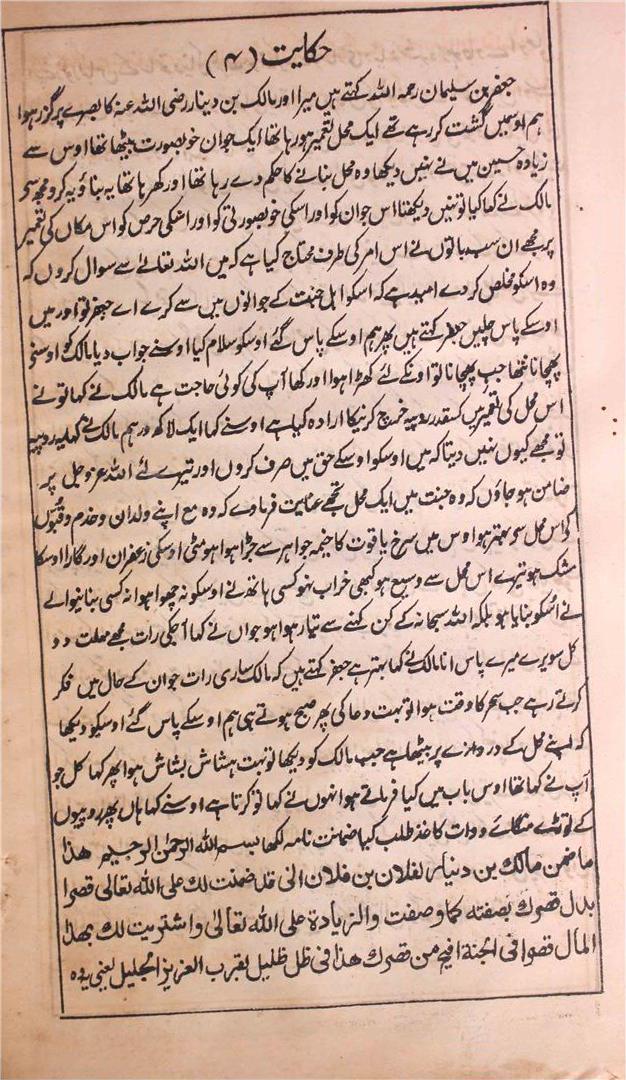 حکایت (۴)
جعفر بن سلیمان رحمہ اللہ کہتے ہیں میرا اور مالک بن دینار رضی اللہ عنہ کا بصرے پر گزر ہوا
ہم اوسمیں گشت کر رہے تھے ایک محل تعمیر ہو رہا تھا ایک جوان خوبصورت بیٹھا تھا اوس سے
زیادہ حسین میں نے نہیں دیکھا وہ محل بنانے کا حکم دے رہا تھا اور کہہ رہا تھا یہ بناؤ یہ کرو مجھ سے
مالک نے کہا کیا تو نہیں دیکھتا اس جوان کو اور اسکی خوبصورتی کو اور اسکی حرص کو اس مکان کی تعمیر
پر مجھے ان سب باتوں نے اس امر کی طرف محتاج کیا ہے کہ میں اللہ تعالے سے سوال کروں کہ
وہ اسکو مخلص کر دے امید ہے کہ اسکو اہل جنت کے جوانوں میں سے کرے اے جعفر تو اور میں
اوسکے پاس چلیں جعفر کہتے ہیں پھر ہم اوسکے پاس گئے اوسکو سلام کیا اوسنے جواب دیا مالک کو اوسنے
پہچانا نتھا جب پہچانا تو اونکے لئے کھڑا ہوا اور کہا آپ کی کوئی حاجت ہے مالک نے کہا تو نے
اس محل کی تعمیر میں کسقدر روپیہ خرچ کرنیکا ارادہ کیا ہے اوسنے کہا ایک لاکھ درہم مالک نے کہا یہ روپیہ
تو مجھے کیوں نہیں دیتا کہ میں اوسکو اوسکے حق میں صرف کروں اور تیرے لئے اللہ عزوجل پر
ضامن ہو جاؤں کہ وہ جنت میں ایک محل تجھے عنایت فرماوے کہ وہ مع اپنے ولدان و خدم و قبوں
کے اس محل سے بہتر ہو اوس میں سرخ یاقوت کا خیمہ جواہر سے جڑا ہوا ہو مٹی اوسکی زعفران اور گارا اوسکا
مشک ہو تیرے اس محل سے وسیع ہو کبھی خراب نہو کسی ہاتھ نے اوسکو نہ چھوا ہو نہ کسی بنانیوالے
نے اسکو بنایا ہو بلکہ اللہ سبحانہ کے کن کہنے سے تیار ہوا ہو جواں نے کہا آجکی رات مجھے مہلت دو
کل سویرے میرے پاس آنا مالک نے کہا بہتر ہے جعفر کہتے ہیں کہ مالک ساری رات جوان کے حال میں فکر
کرتے رہے جب سحر کا وقت ہوا تو بہت دعا کی پھر صبح ہوتے ہی ہم اوسکے پاس گئے اوسکو دیکھا
کہ اپنے محل کے دروازے پر بیٹھا ہے جب مالک کو دیکھا تو بہت ہشاش بشاش ہوا پھر کہا کل جو
آپ نے کہا تھا اوس باب میں کیا فرماتے ہو انہوں نے کہا تو کرتا ہے اوسنے کہا ہاں پھر روپیوں
کے توڑے منگائے و دوات کاغذ طلب کیا ضمانت نامہ لکھا بسم اللہ الرحمن الرحیم هذا
ما ضمن مالك بن دینار لفلان بن فلان انی قد ضمنت لك علی اللہ تعالی قصرا
بدل قصرك بصفته كما وصفت والزیادة علی اللہ تعالیٰ واشتریت لك بهذا
المال قصرا فی الجنة افیح من قصرك هذا فی ظل ظلیل بقرب العزیز الجلیل یعنی یہ وہ